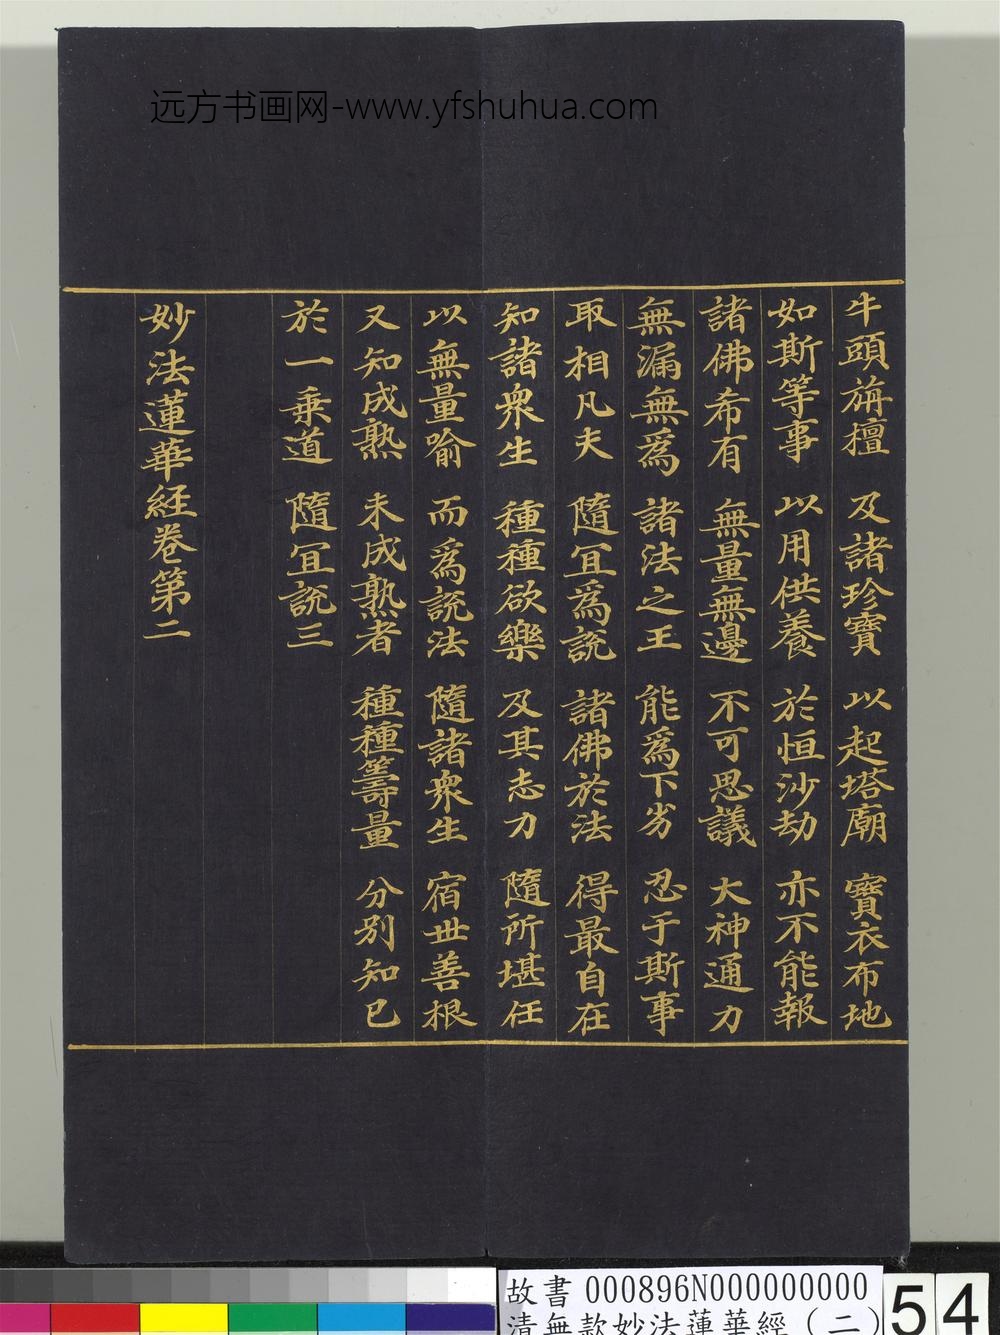 远方书画网-www.yfshuhua.com
牛頭旃檀 及諸珍寶 以起塔廟 寶衣布地
如斯等事 以用供養 於恒沙劫 亦不能報
諸佛希有 無量無邊 不可思議 大神通力
無漏無為 諸法之王 能為下劣 忍于斯事
取相凡夫 隨宜為說 諸佛於法 得最自在
知諸衆生 種種欲樂 及其志力 隨所堪任
以無量喻 而為說法 隨諸衆生 宿世善根
又知成熟 未成熟者 種種籌量 分別知已
於一乗道 隨宜說三
妙法蓮華經卷第二
故書 000896N000000000
清無款妙法蓮華經(二)
54